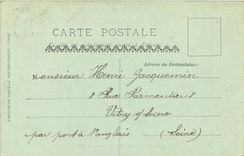 CARTE POSTALE
Adresse du Destinataire
Monsieur Henri Jacquemin
8 Rue Parmentier 8
Vitry s/Seine
par port à l'anglais (Seine)